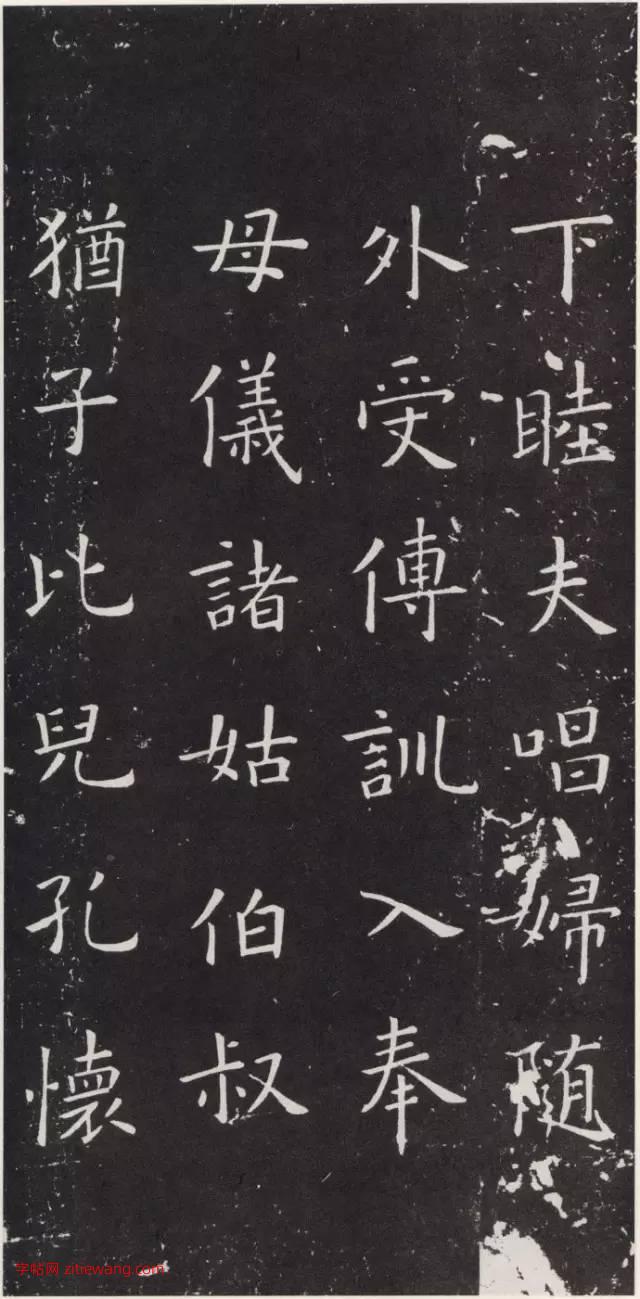 下睦夫唱婦随
外受傅訓入奉
母儀諸姑伯叔
猶子比兒孔懷
字帖网 zitiewang.com